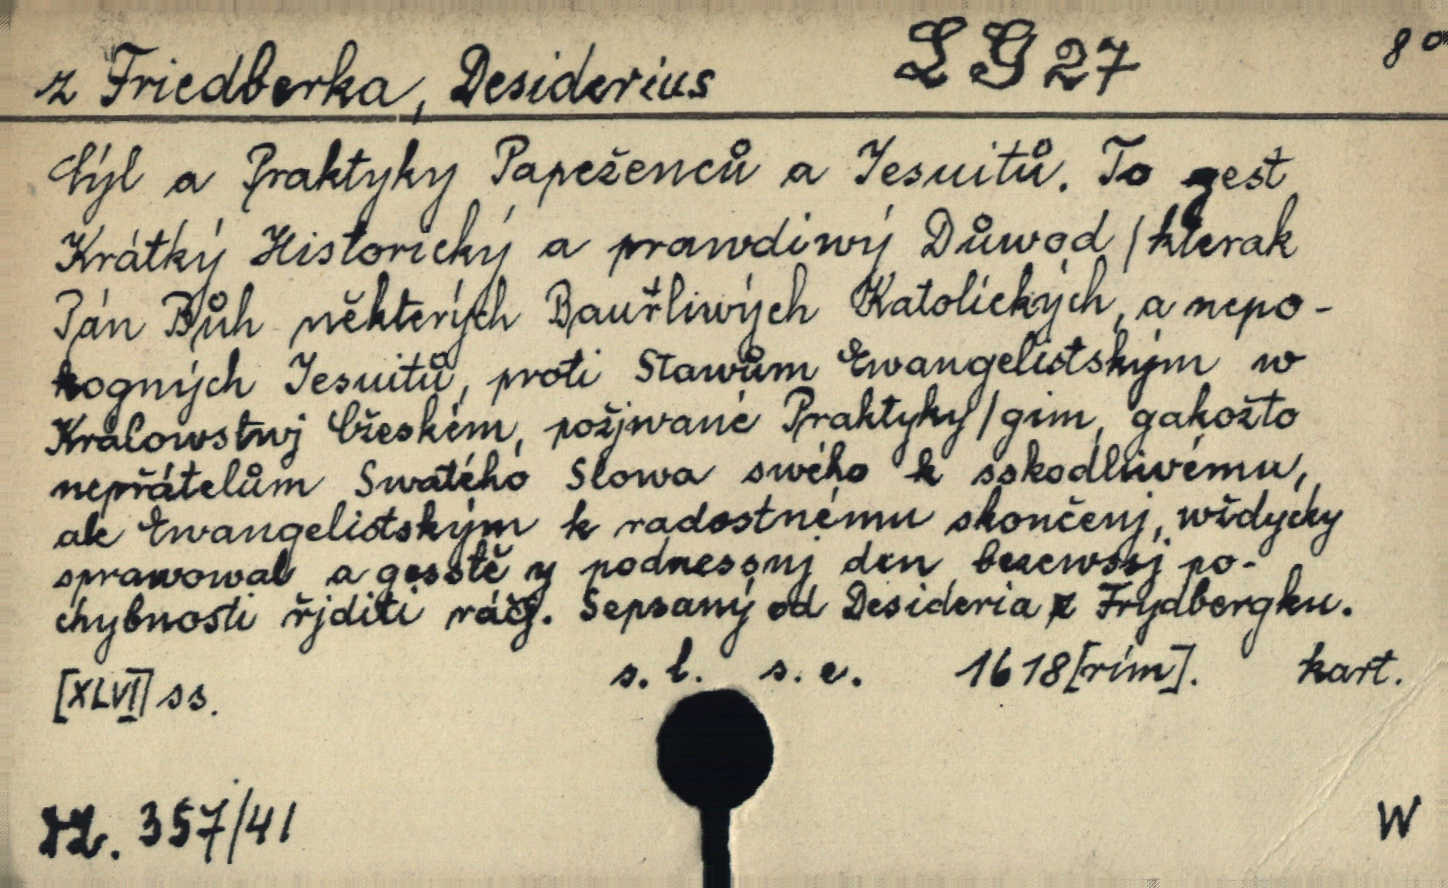 z Friedberka, Desiderius LG 27 8°
Cýl a Praktyky Papeženců a Jesuitů. To gest
Krátký Historický a prawdiwý Důwod / kterak
Pán Bůh některých Bauřliwých Katolických, a nepo-
kogných Jesuitů, proti Stawům Ewangelistským w
Kralowstwj Cžeském, požjwané Praktyky / gim, gakožto
nepřátelům Swatého Slowa swého k sskodliwému,
ale Ewangelistským k radostnému skončenj, wždycky
sprawowal a gesstě y podnessnj den bezewssj po-
chybnosti řjditi ráčj. Sepsaný od Desideria z Frydbergku.
[XLVI] ss. s. l. s. e. 1618 [rím]. kart.
357/41 W